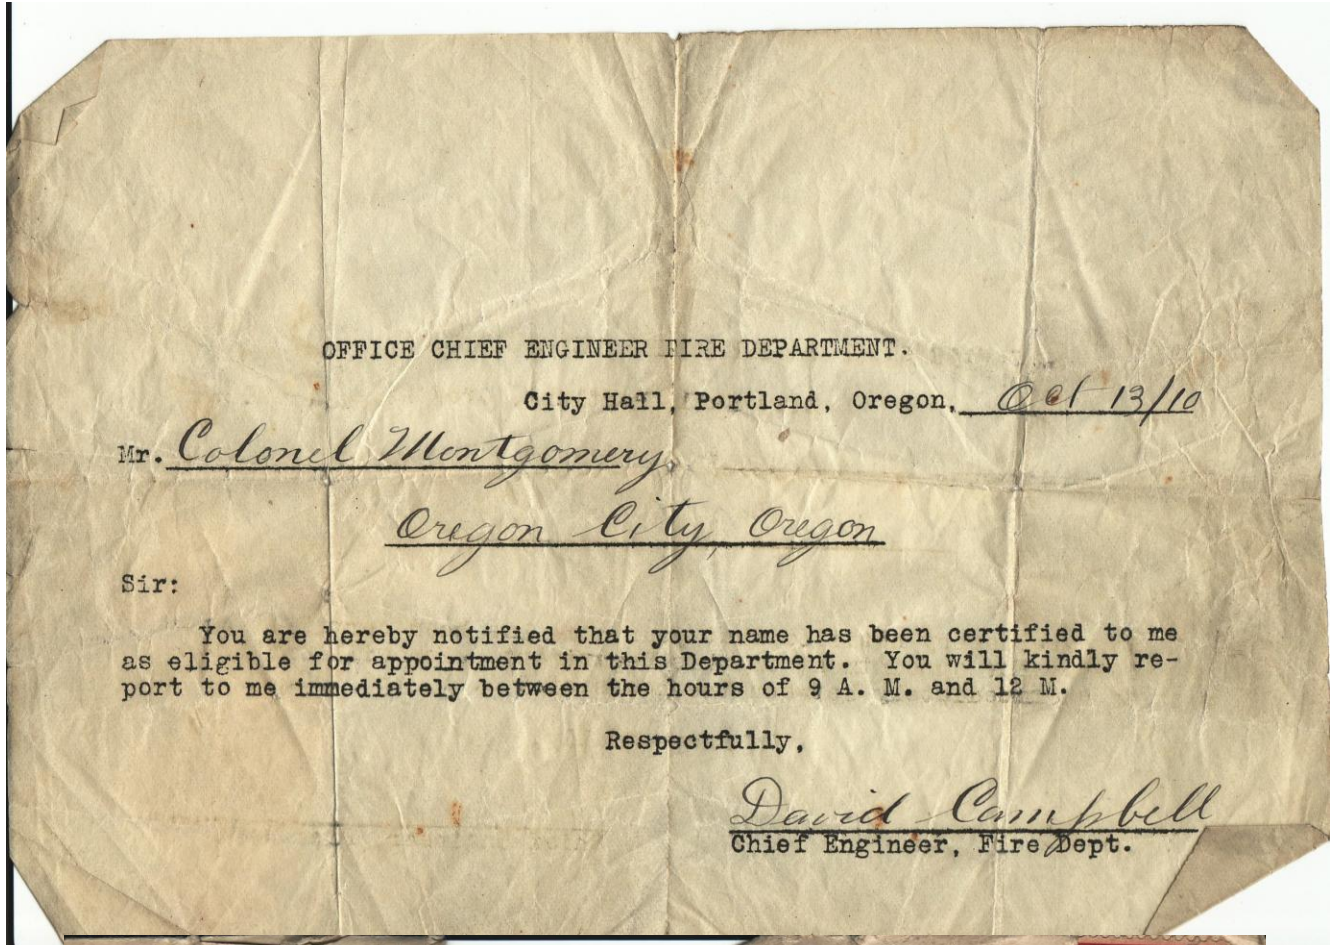 OFFICE CHIEF ENGINEER FIRE DEPARTMENT.
City Hall, Portland, Oregon, Oct 13/10
Mr. Colonel Montgomery,
Oregon City, Oregon
Sir:
You are hereby notified that your name has been certified to me
as eligible for appointment in this Department. You will kindly re-
port to me immediately between the hours of 9 A. M. and 12 M.
Respectfully,
David Campbell
Chief Engineer, Fire Dept.